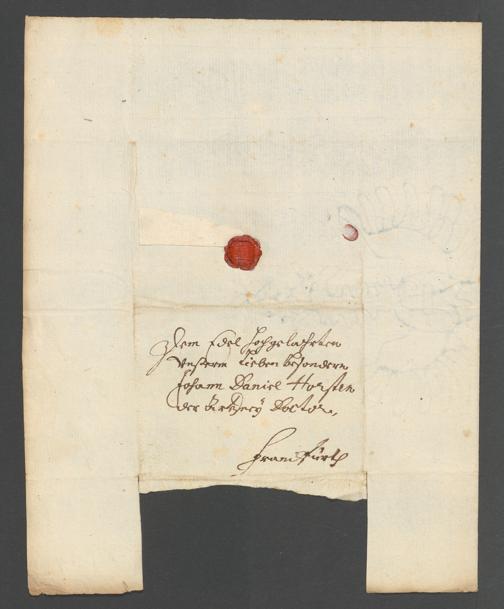 Dem Edel Hochgelahrten
Unserm Lieben besondern
Johann Daniel Horsten
der Artzeney Doctor,
Franckfurth